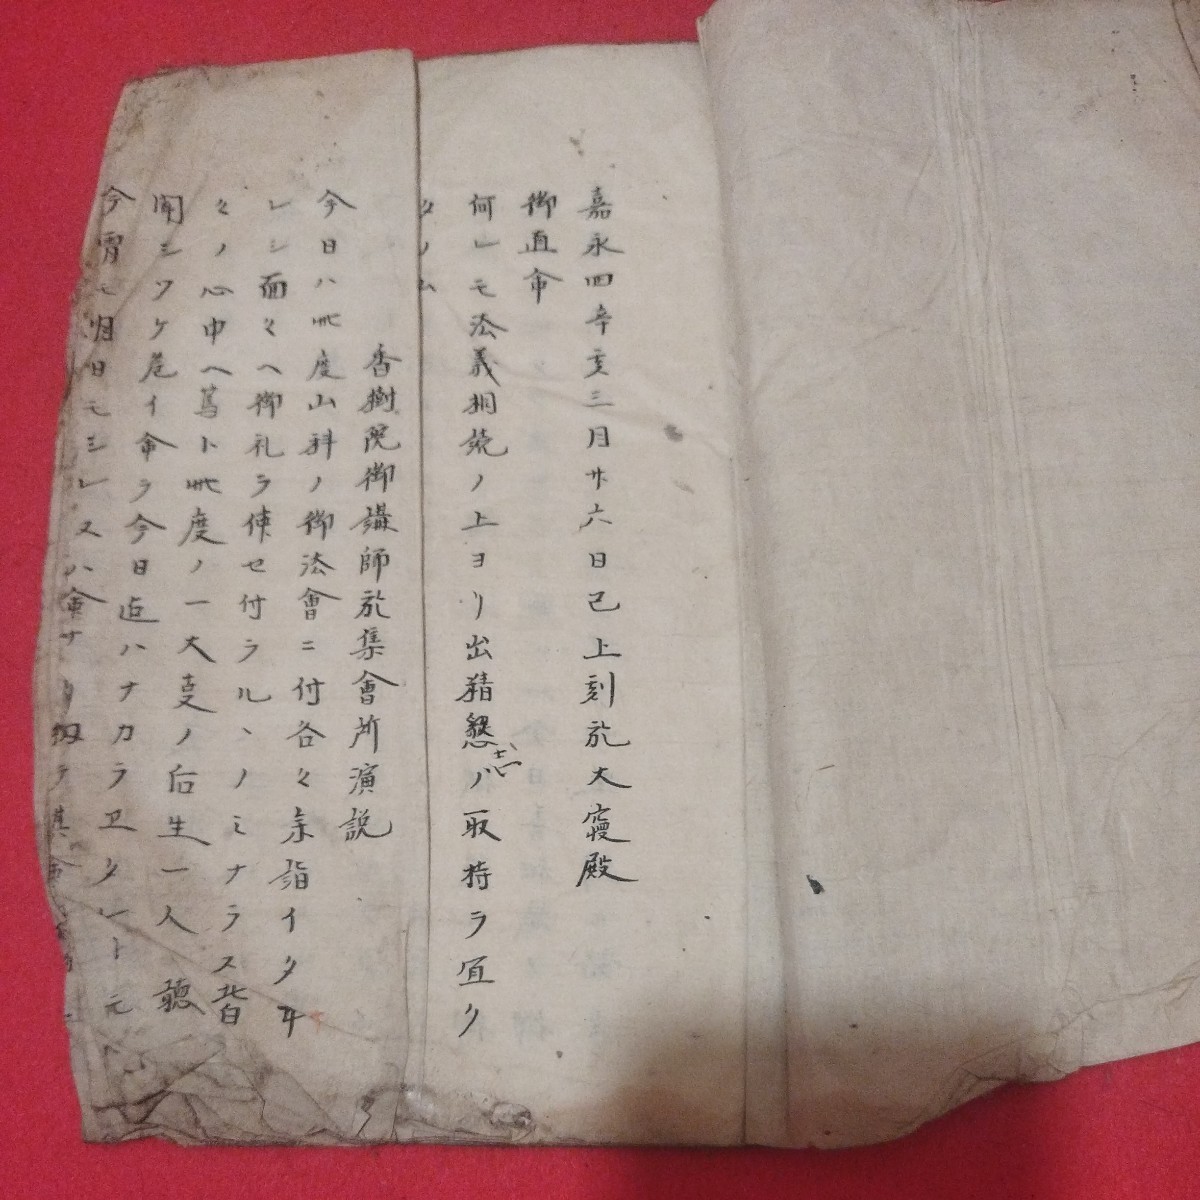 嘉永四辛亥三月廿六日巳上刻於大寢殿
御直命
何レモ法義相続ノ上ヨリ出精懇志ノ取持ヲ宜ク
タノム
香樹院御講師於集會所演説
今日ハ此度山科ノ御法會ニ付各々参詣イタサ
レシ面々ヘ御礼ヲ仰セ付ラルヽノミナラス皆
々ノ心中ヘ篤ト此度ノ一大事ノ后生一人聴
聞シワケ危イ命ヲ今日迠ハナカラヱタレト元
今宵モ明日モシレヌハ命ナリ扨テ其